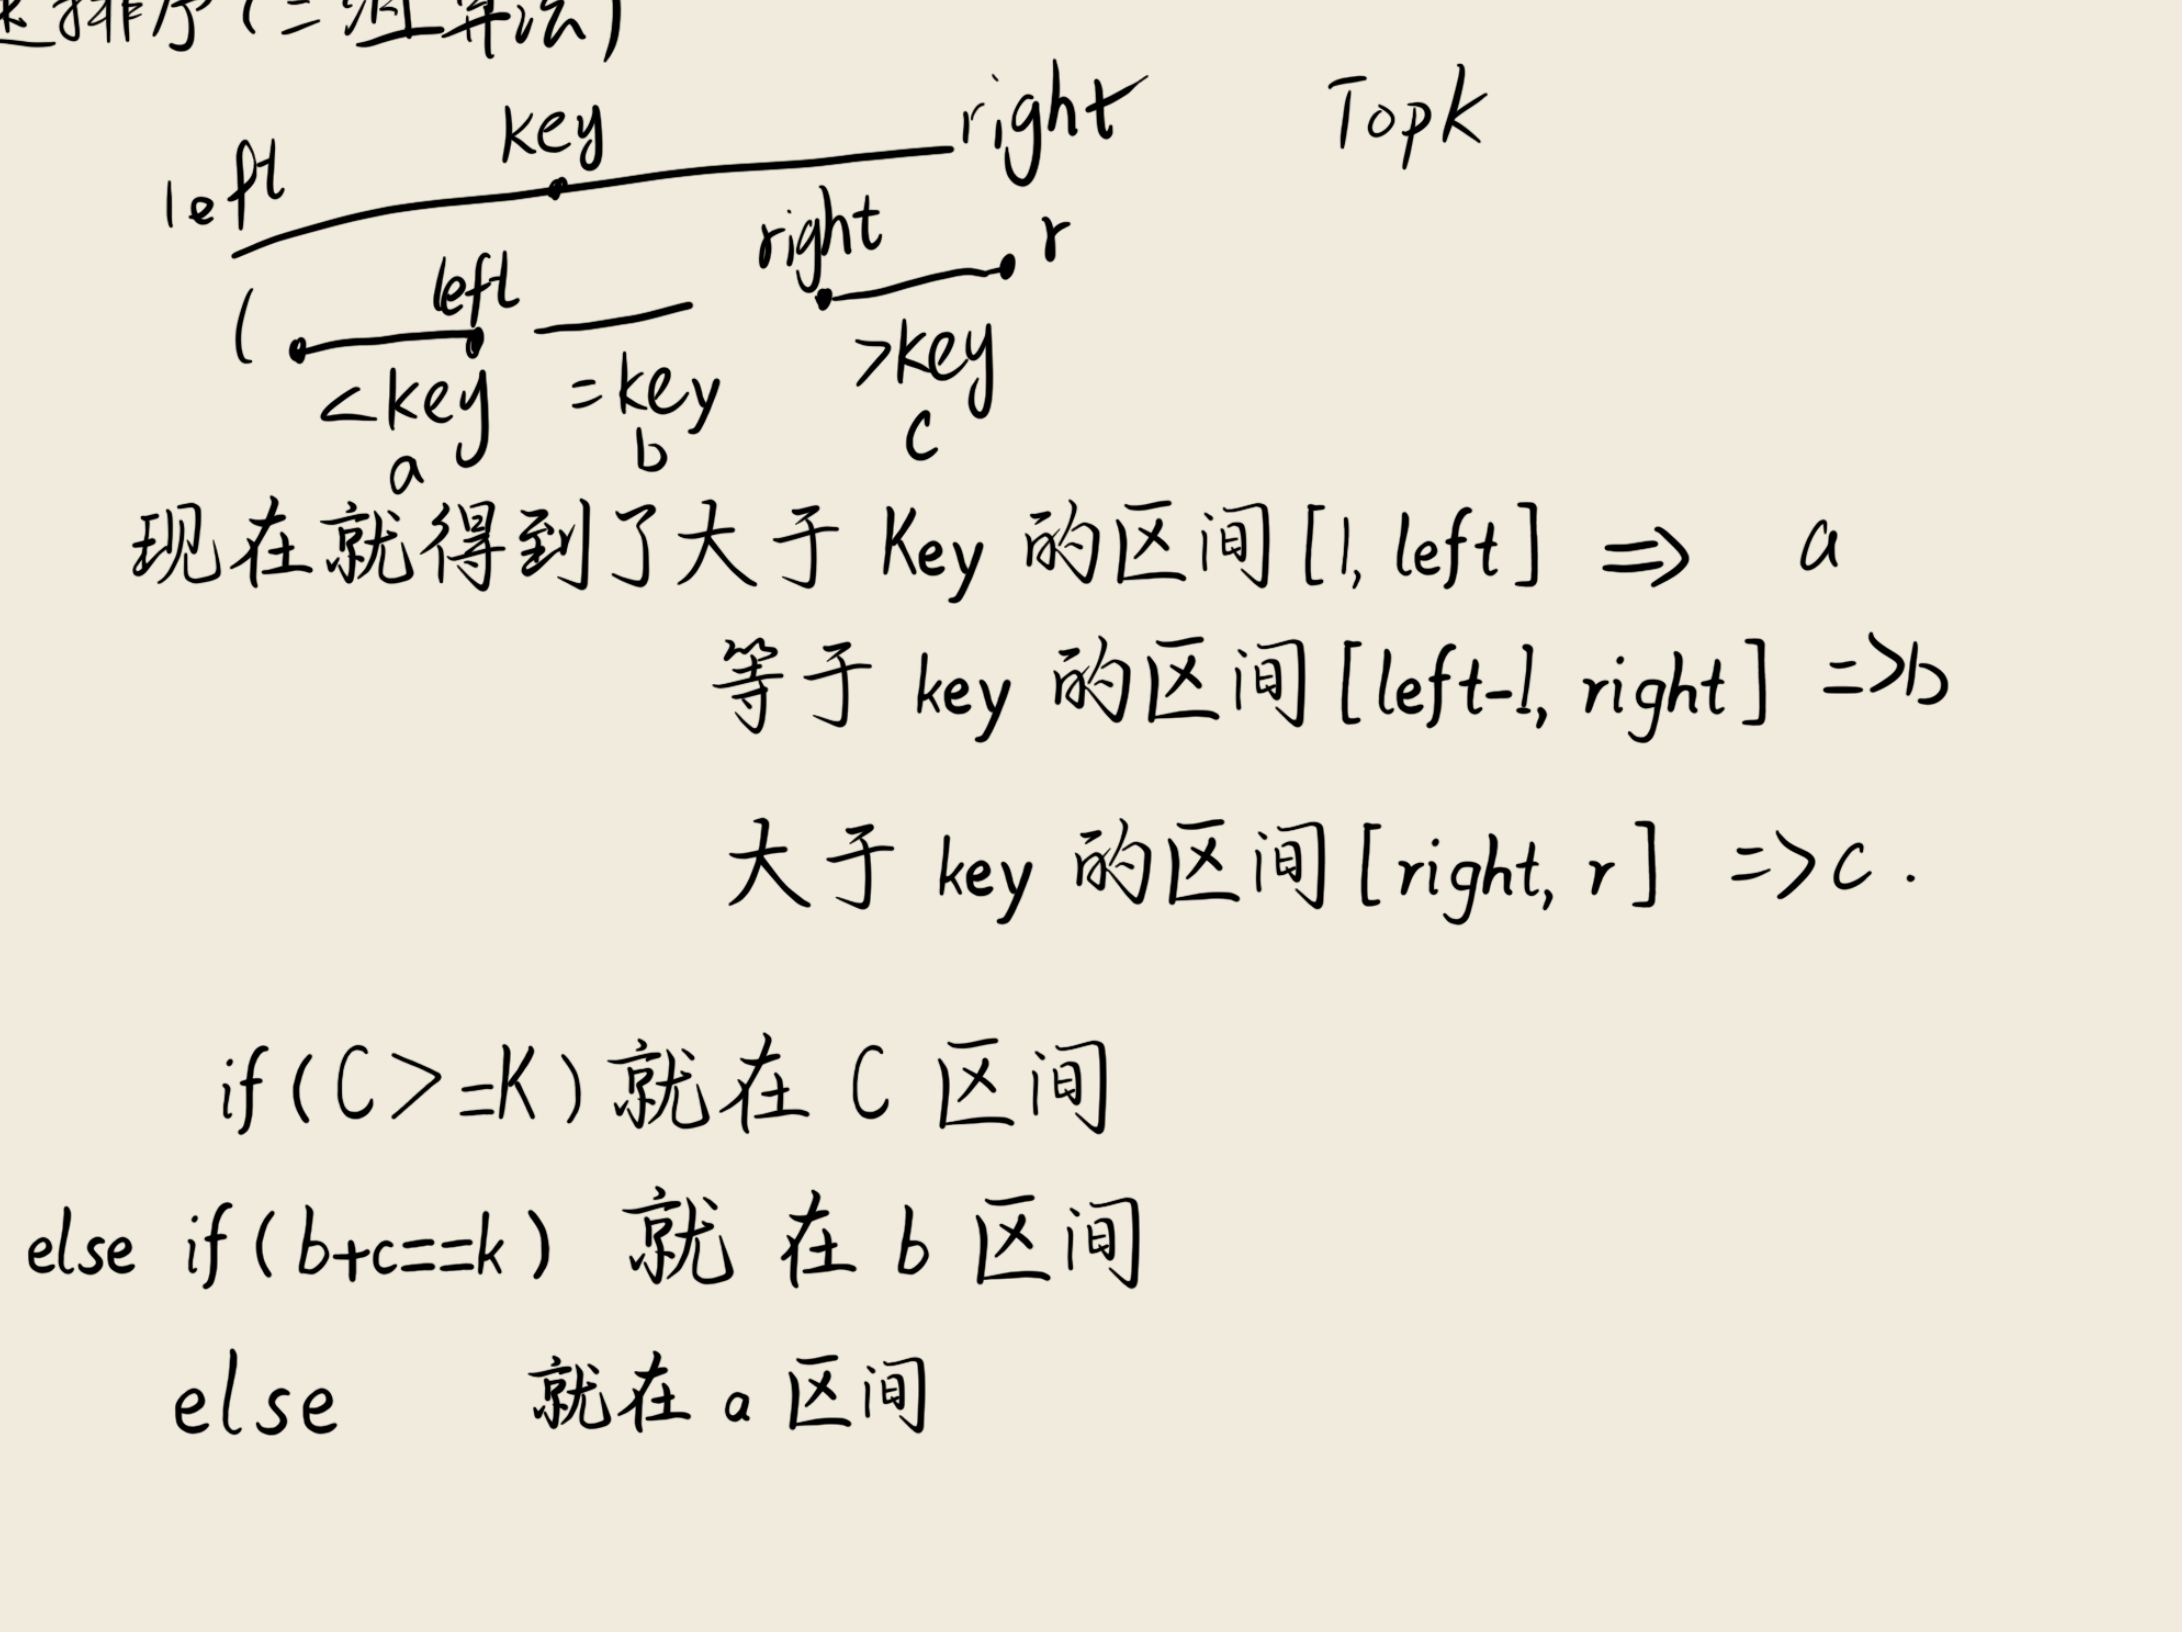 排序(三
key
right
Topk
left
right
r
left
l
<key
=key
>key
a
b
c
现在就得到了大于 Key 的区间 [l, left] => a
等于 key 的区间 [left-1, right] =>b
大于 key 的区间 [right, r] =>c.
if(C>=K) 就在 C 区间
else if(b+c==k) 就 在 b 区间
else 就在 a 区间